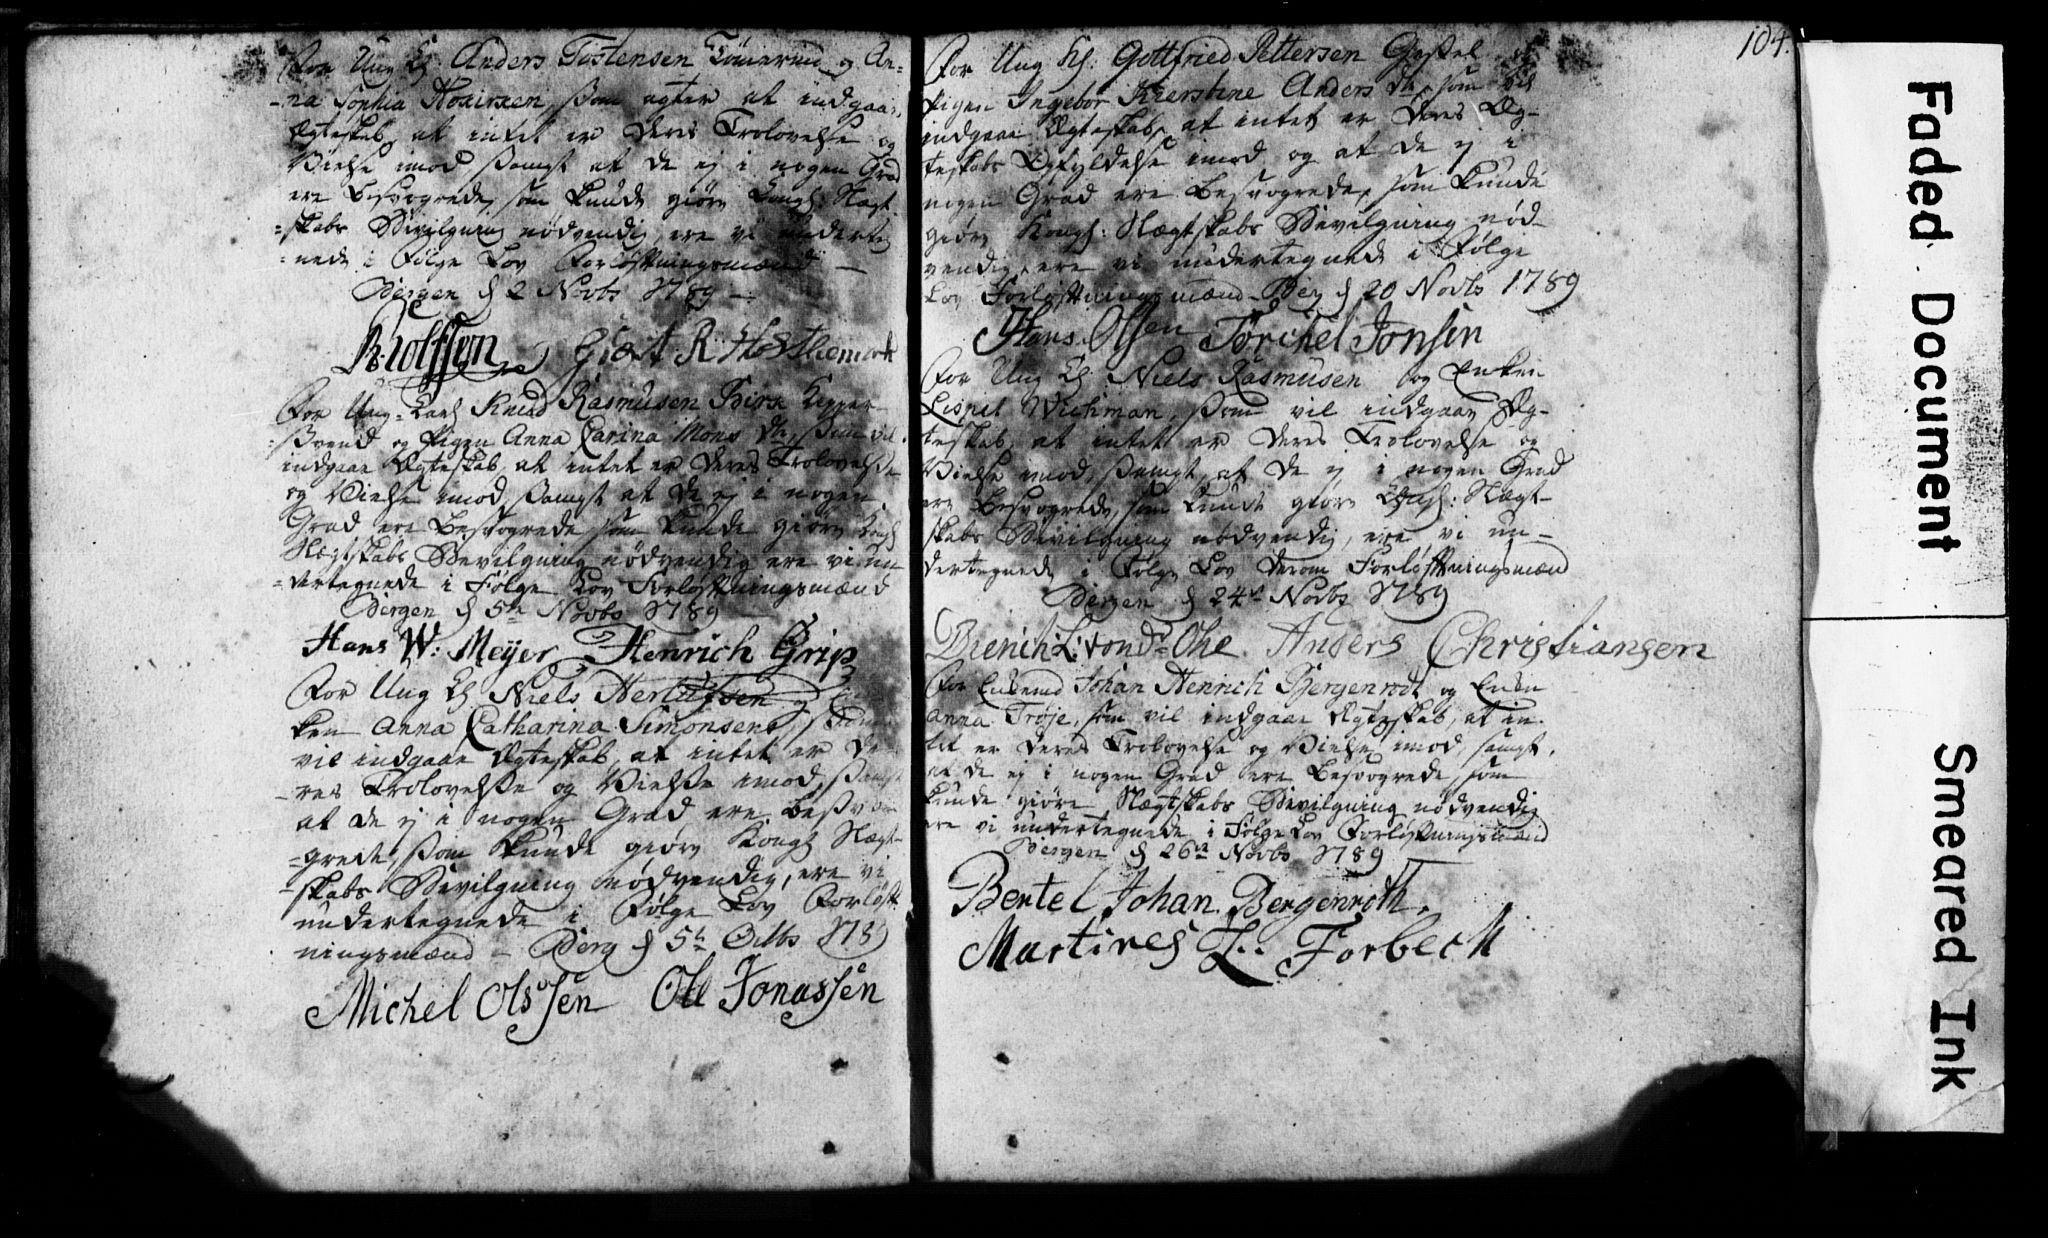 For Ung K. Anders Tostensen Tømerud og An-
-na Sophia, som agter at indgaae
Ægteskab, at intet er deres Trolovelse og
Vielse imod, samt at de ej i nogen Grad
ere besvogrede, som kunde giøre Kongl: Slægt
=skabs Bevilgning nødvendig, ere vi underteg
=nede i Følge Lov Forløftningsmænd —
Bergen d 2 Novbr 1789 —
Rolfsen Giert R Hosthemark
For Ung-Karl Knud Rasmusen Birk
=svend og Pigen Anna Carina Mons dr, som vil
indgaae Ægteskab, at intet er deres Trolovelse
og Vielse imod, samt at de ej i nogen
Grad ere besvogrede som kunde giøre Kongl
Slægtskabs Bevilgning nødvendig ere vi un
=dertegnede i Følge Lov Forløftningsmænd
Bergen d 5te Novbr 1789
Hans W: Meyer Henrich Grip
For Ung K. Niels Herlufsen og En
ken Anna Catharina Simonsen, som
vil indgaae Ægteskab, at intet er De-
-res Trolovelse og Vielse imod, samt
at de ej i nogen Grad ere besvo
=grede, som kunde giøre Kongl Slægt-
-skabs Bevilgning nødvendig, ere vi
undertegnede i Følge Lov Forløft
ningsmænd - Berg d 5t Octbr 1789
Michel Olssen Ole Jonassen
104.
For Ung K: Gottfried Pettersen og
Pigen Ingebor Kierstine Anders dr, som vil
indgaae Ægteskab, at intet er deres Æg-
teskabs Opfyldelse imod, og at de ej i
nogen Grad ere besvogrede, som kunde
giøre Kongl: Slægtskabs Bevilgning nød-
vendig, ere vi undertegnede i Følge
Lov Forløftningsmænd - Berg d 20 Novbr 1789
Hans Olsen Torchel Jonsen
For Ung K. Niels Rasmusen og Enken
Lispet Wichman, som vil indgaae Æg-
teskab, at intet er deres Trolovelse og
Vielse imod, samt, at de ej i nogen Grad
ere besvogrede, som kunde giøre Kongl: Slægt-
skabs Bevilgning nødvendig, ere vi un-
dertegnede i Følge Lov derom Forløftningsmænd
Bergen d 24de Novbr 1789
Anders Christiansen
For Enkemd Johan Henrich Bergenrodt og Enken
Anna Trøje, som vil indgaae Ægteskab, at in-
tet er deres Trolovelse og Vielse imod, samt,
at de ej i nogen Grad ere besvogrede, som
kunde giøre Slægtskabs Bevilgning nødvendig
ere vi undertegnede i Følge Lov Forløftningsmænd
Bergen d 26de Novbr 1789
Bertel Johan Bergenroth.
Martines L: Forbech
Faded Document
Smeared Ink